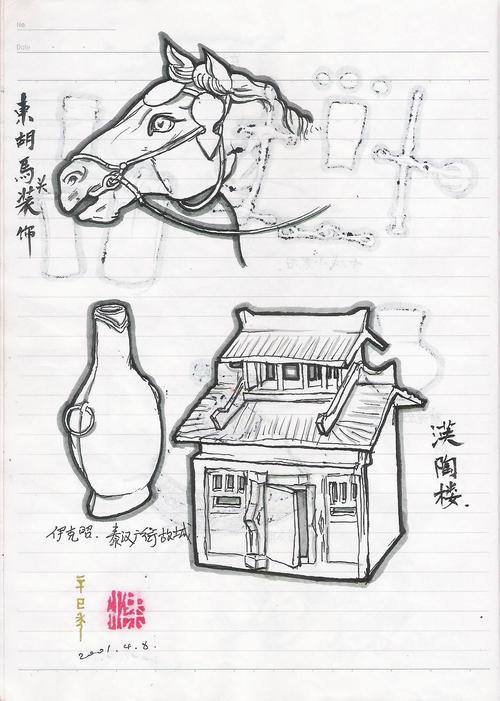 No.
Date
東胡馬裝飾
漢陶楼.
伊克昭. 秦汉广衍故城
辛巳年
2001.4.8.